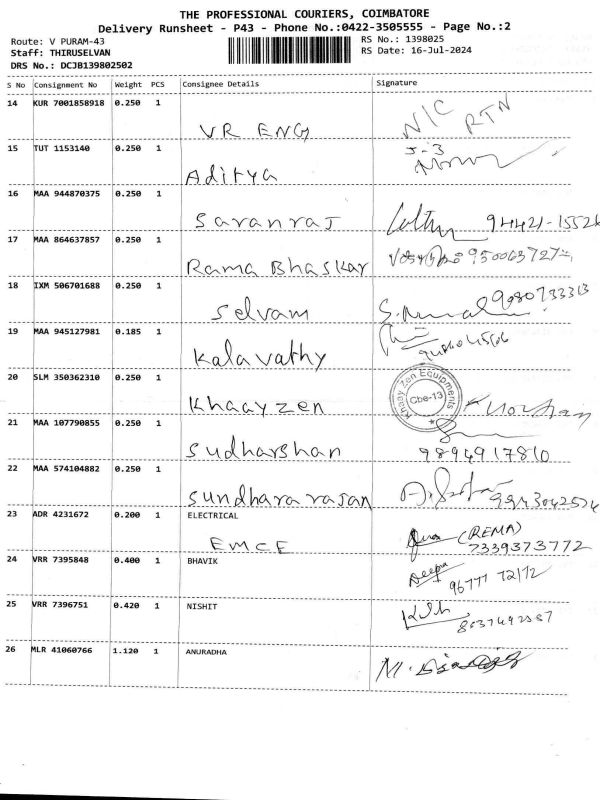 THE PROFESSIONAL COURIERS, COIMBATORE
Delivery Runsheet - P43 - Phone No.:0422-3505555 - Page No.:2
Route: V PURAM-43 RS No.: 1398025
Staff: THIRUSELVAN RS Date: 16-Jul-2024
DRS No.: DCJB139802502
S No Consignment No Weight PCS Consignee Details Signature
14 KUR 7001858918 0.250 1 VR ENG N/C RTN
15 TUT 1153140 0.250 1 Aditya J-3
16 MAA 944870375 0.250 1 Saranraj 94421-15526
17 MAA 864637857 0.250 1 Rama Bhaskar
18 IXM 506701688 0.250 1 Selvam 9080733313
19 MAA 945127981 0.185 1 Kalavathy
20 SLM 350362310 0.250 1 Khaayzen Khaay Zen Equipments Cbe-13
21 MAA 107790855 0.250 1 Sudharshan 9894917810
22 MAA 574104882 0.250 1 Sundhararajan
23 ADR 4231672 0.200 1 ELECTRICAL
EMCE (REMA)
7339373772
24 VRR 7395848 0.400 1 BHAVIK Deepa
96777 72172
25 VRR 7396751 0.420 1 NISHIT
26 MLR 41060766 1.120 1 ANURADHA